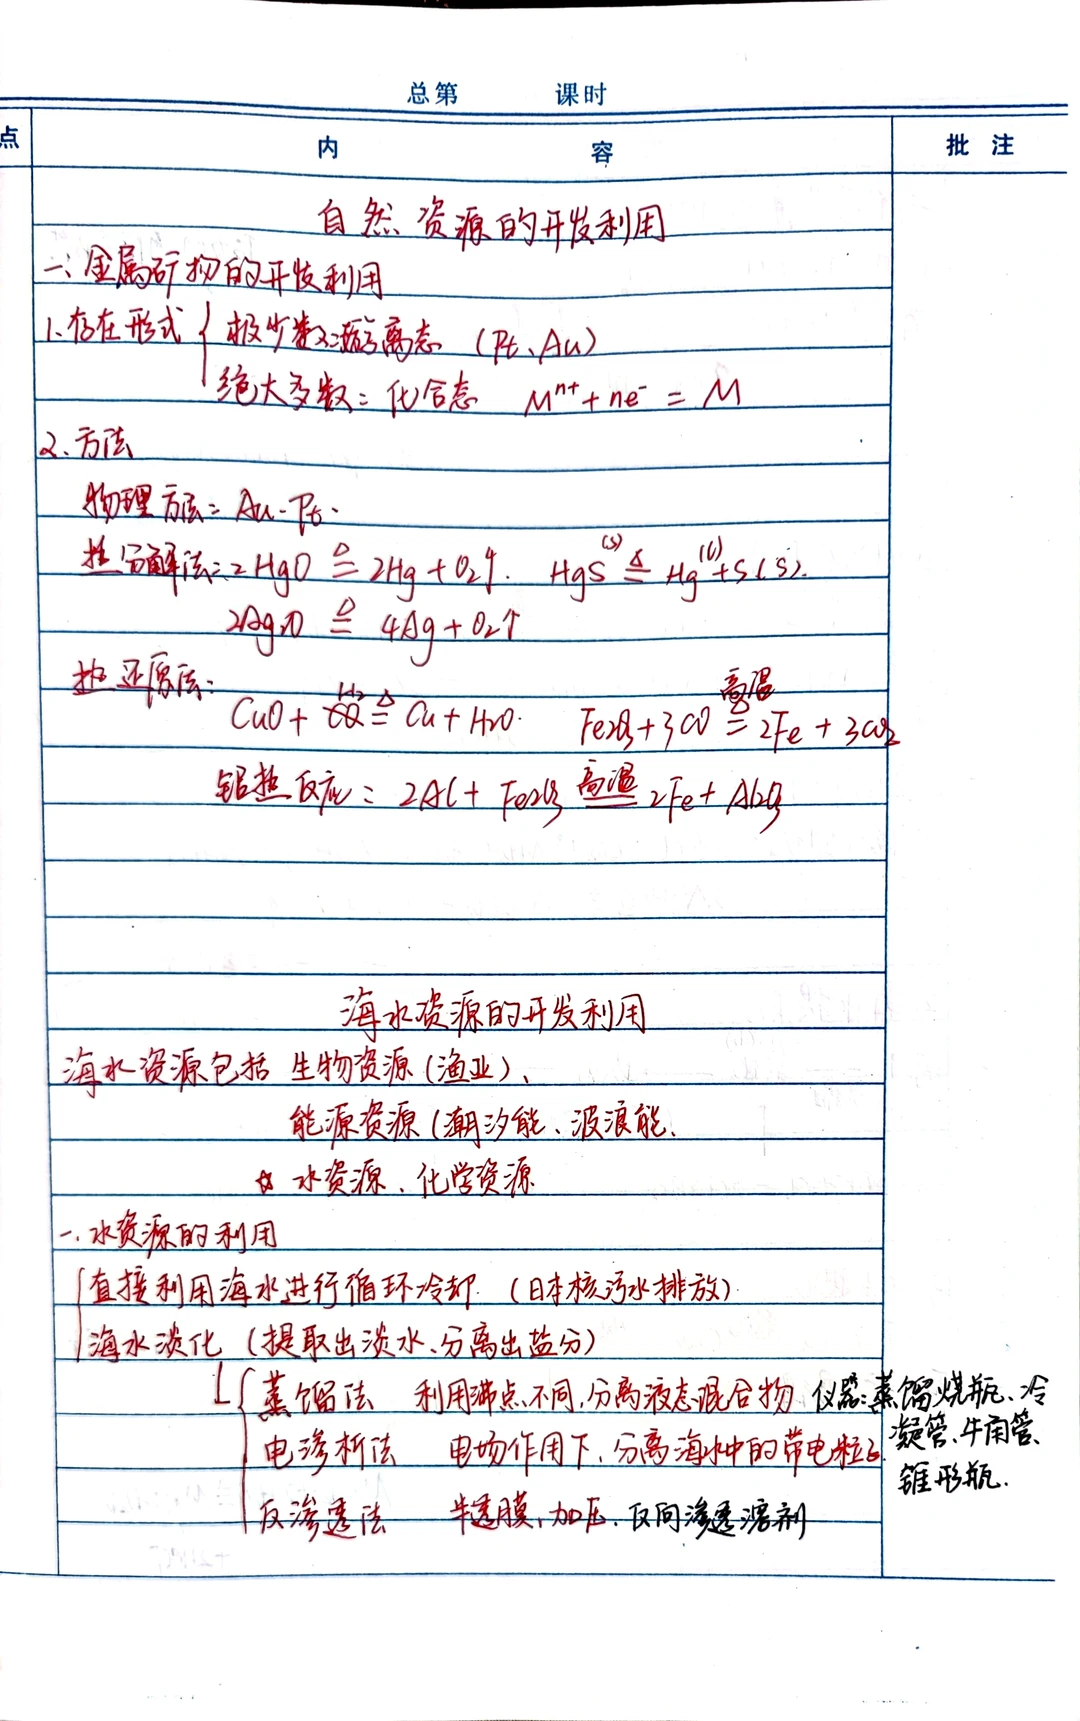 总第 课时
点 内 容 批 注
自然资源的开发利用
一、金属矿物的开发利用
1、存在形式 { 极少数:游离态 (Pt、Au)
绝大多数: 化合态 Mⁿ⁺ + ne⁻ = M
2、方法
物理方法: Au - Pt.
热分解法: 2HgO ≜ 2Hg + O₂↑. HgS(s) ≜ Hg(l) + S(s).
2Ag₂O ≜ 4Ag + O₂↑
热还原法:
CuO + H₂ ≜ Cu + H₂O. Fe₂O₃ + 3CO 高温= 2Fe + 3CO₂
铝热反应: 2Al + Fe₂O₃ 高温= 2Fe + Al₂O₃
海水资源的开发利用
海水资源包括 生物资源(渔业)、
能源资源(潮汐能、波浪能、
☆ 水资源、化学资源
一、水资源的利用
直接利用海水进行循环冷却. (日本核污水排放)
海水淡化 (提取出淡水、分离出盐分)
蒸馏法 利用沸点不同,分离液态混合物 仪器:蒸馏烧瓶、冷
凝管、牛角管、
电渗析法 电场作用下,分离海水中的带电粒子.
锥形瓶.
反渗透法 半透膜、加压、反向渗透溶剂